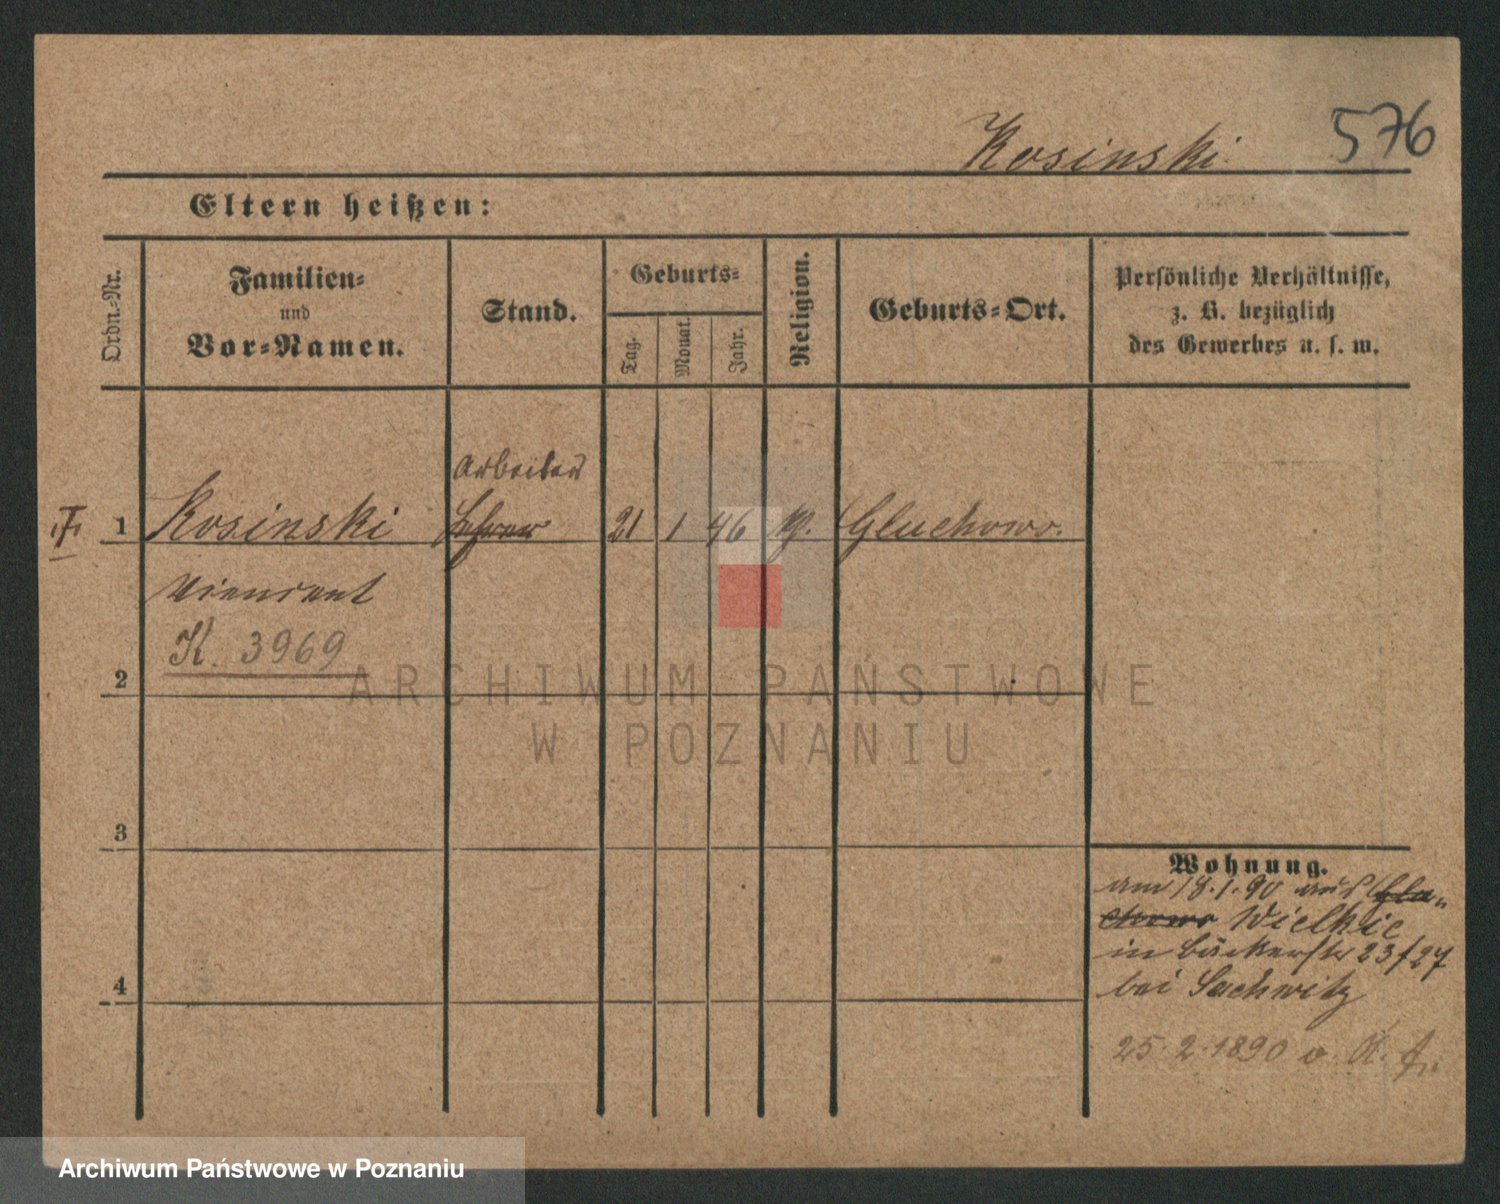 Kosinski
576
Eltern heißen:
Ordn.-Nr.
Familien-
und
Vor-Namen.
Stand.
Geburts-
Tag.
Monat.
Jahr.
Religion.
Geburts-Ort.
Persönliche Verhältnisse,
z. B. bezüglich
des Gewerbes u. s. w.
Arbeiter
1 Kosinski 21 1 46 Gluchowo.
K. 3969
2
ARCHIWUM PAŃSTWOWE
W POZNANIU
3
4
Wohnung.
am 18.1.90 aus Glu-
chowo Wielkie
in Bäckerstr 23/27
bei Sachwitz
25.2.1890
Archiwum Państwowe w Poznaniu